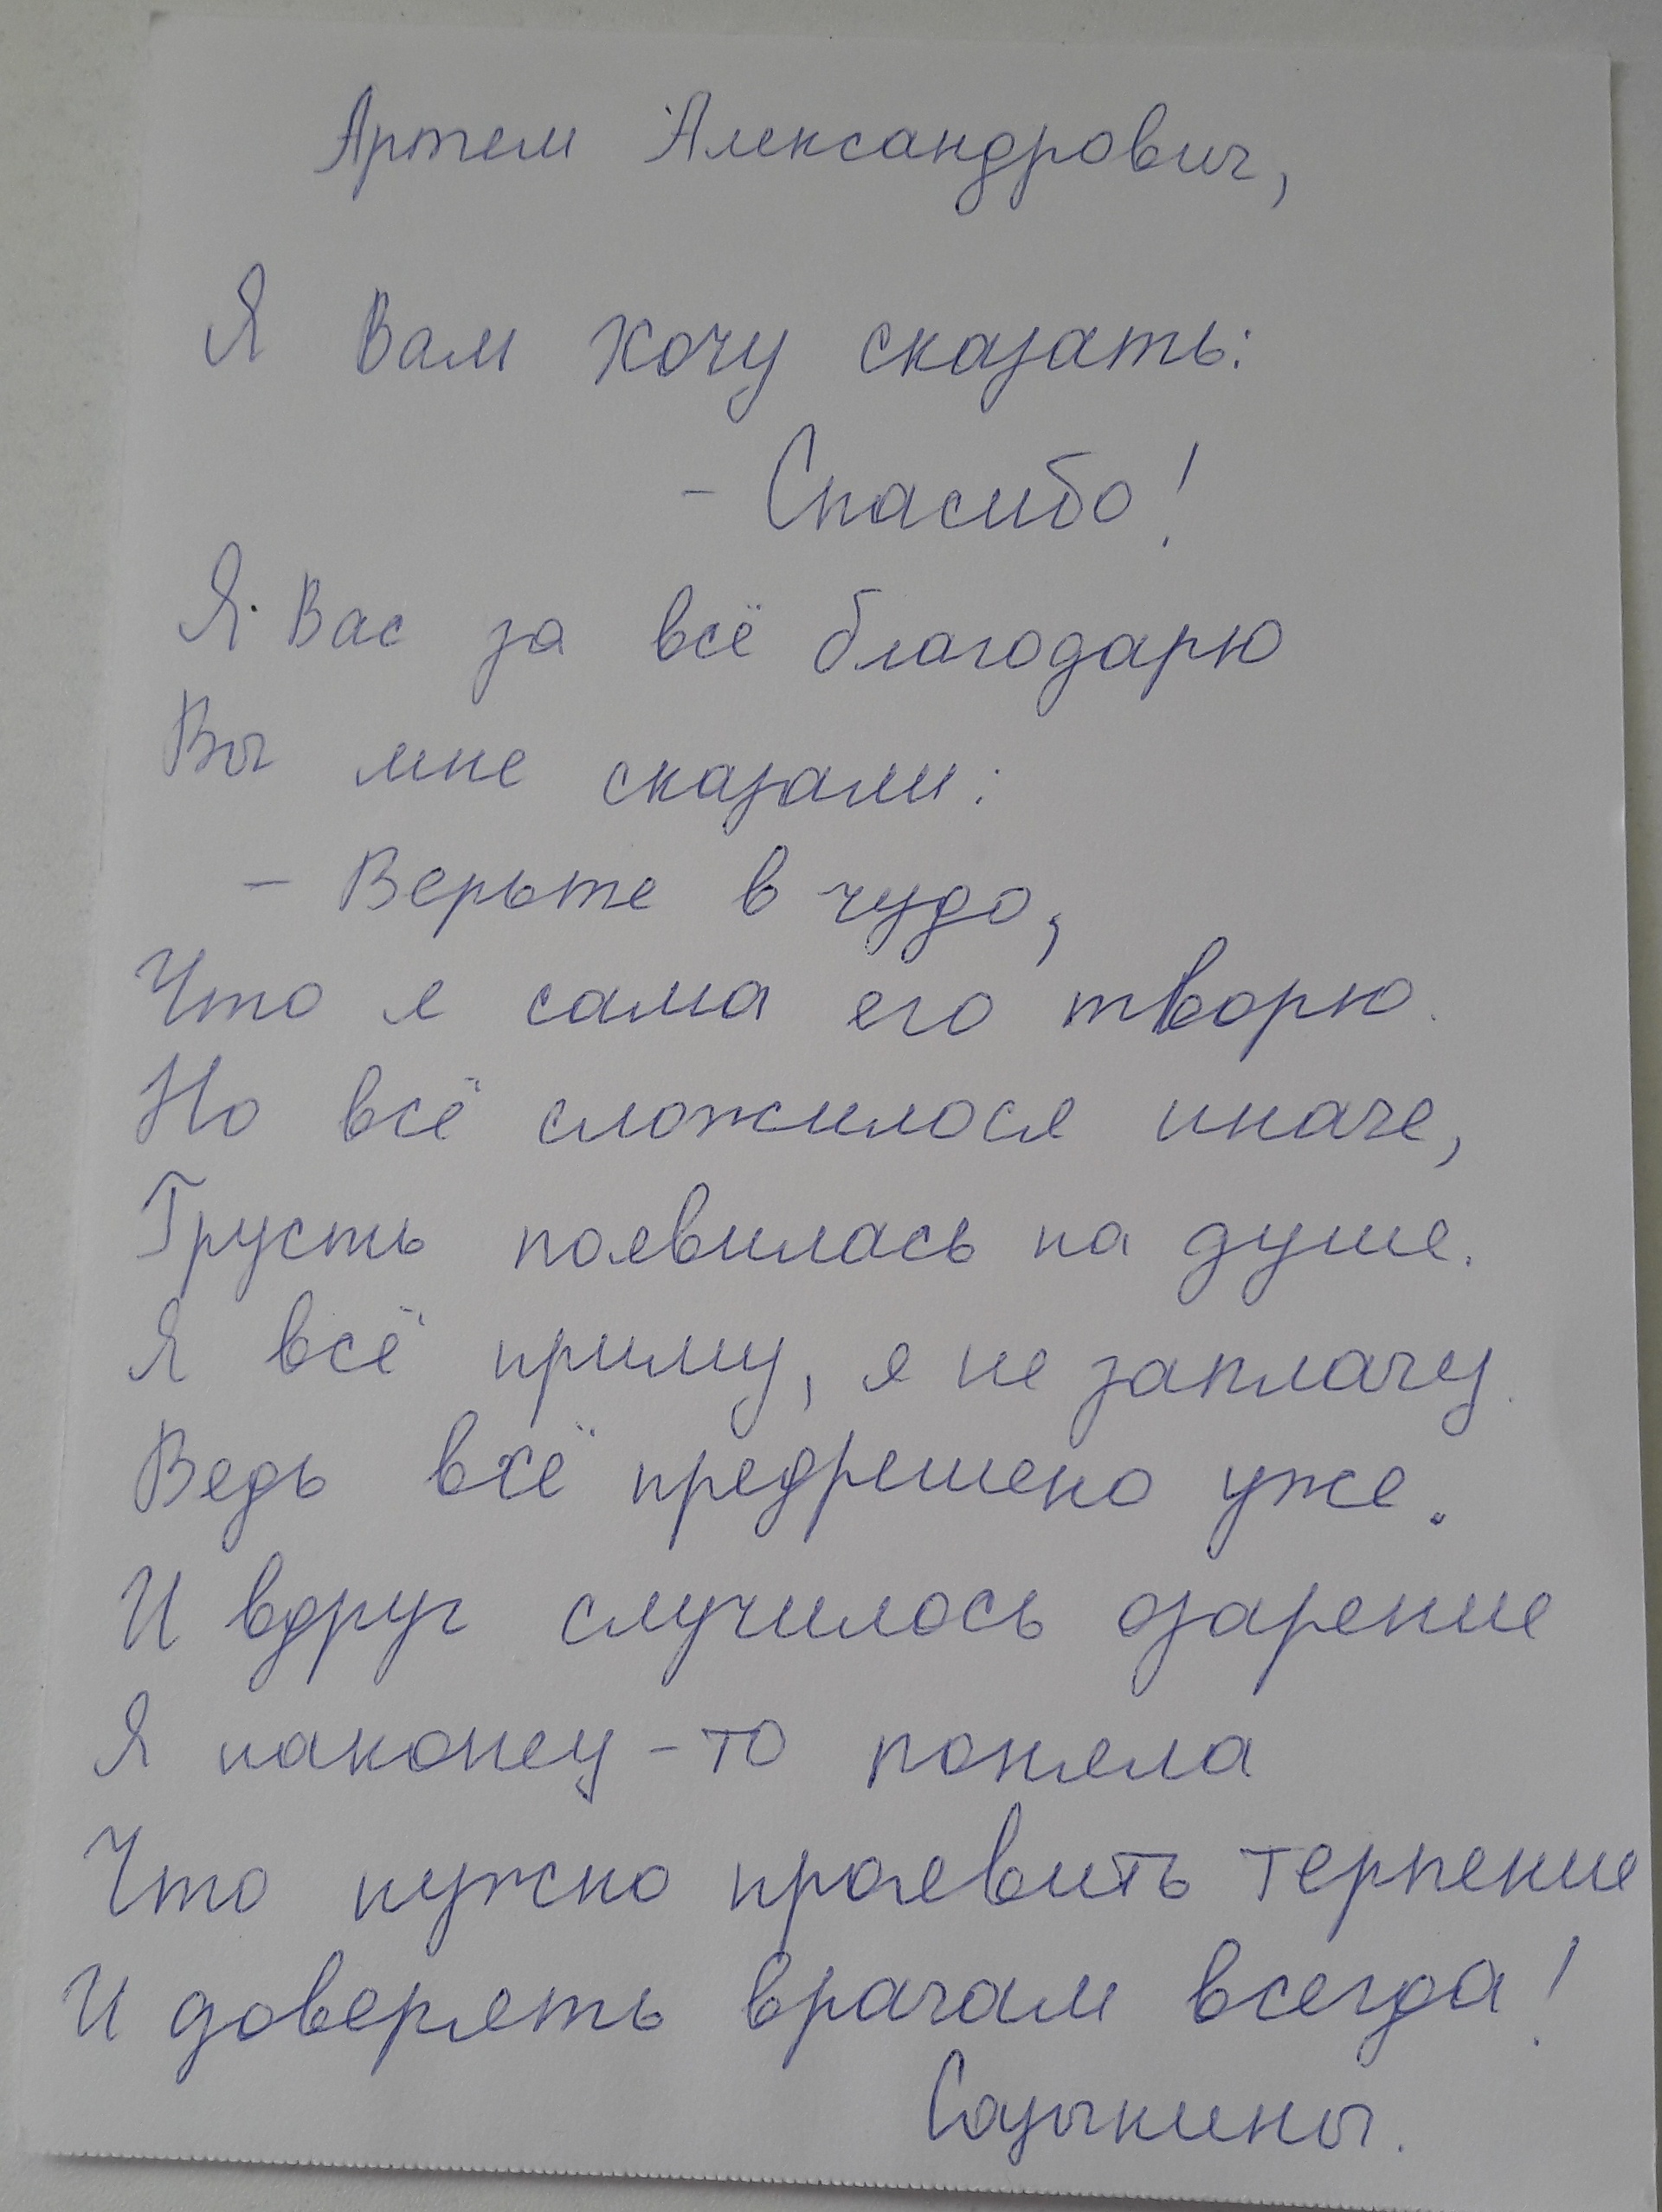 Артем Александрович,
Я Вам хочу сказать:
- Спасибо!
Я Вас за всё благодарю
Вы мне сказали:
- Верьте в чудо,
Что я сама его творю.
Но всё сложилося иначе,
Грусть появилась на душе.
Я всё приму, я не заплачу.
Ведь всё предрешено уже.
И вдруг случилось озарение
Я наконец-то поняла
Что нужно проявить терпение
И доверять врачам всегда!